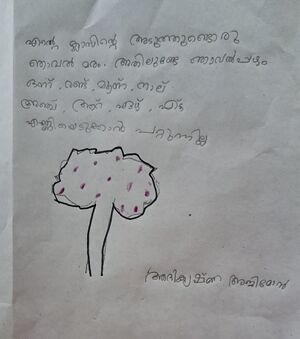 എന്റെ ക്ലാസിന്റെ അടുത്തുണ്ടൊരു
ഞാവൽ മരം. അതിലുണ്ടേ ഞാവൽപ്പഴം
ഒന്ന്, രണ്ട്, മൂന്ന്, നാല്
അഞ്ച്, ആറ്, ഏഴ്, എട്ട്
എണ്ണിയെടുക്കാൻ പറ്റുന്നില്ല
ആദികൃഷ്ണ